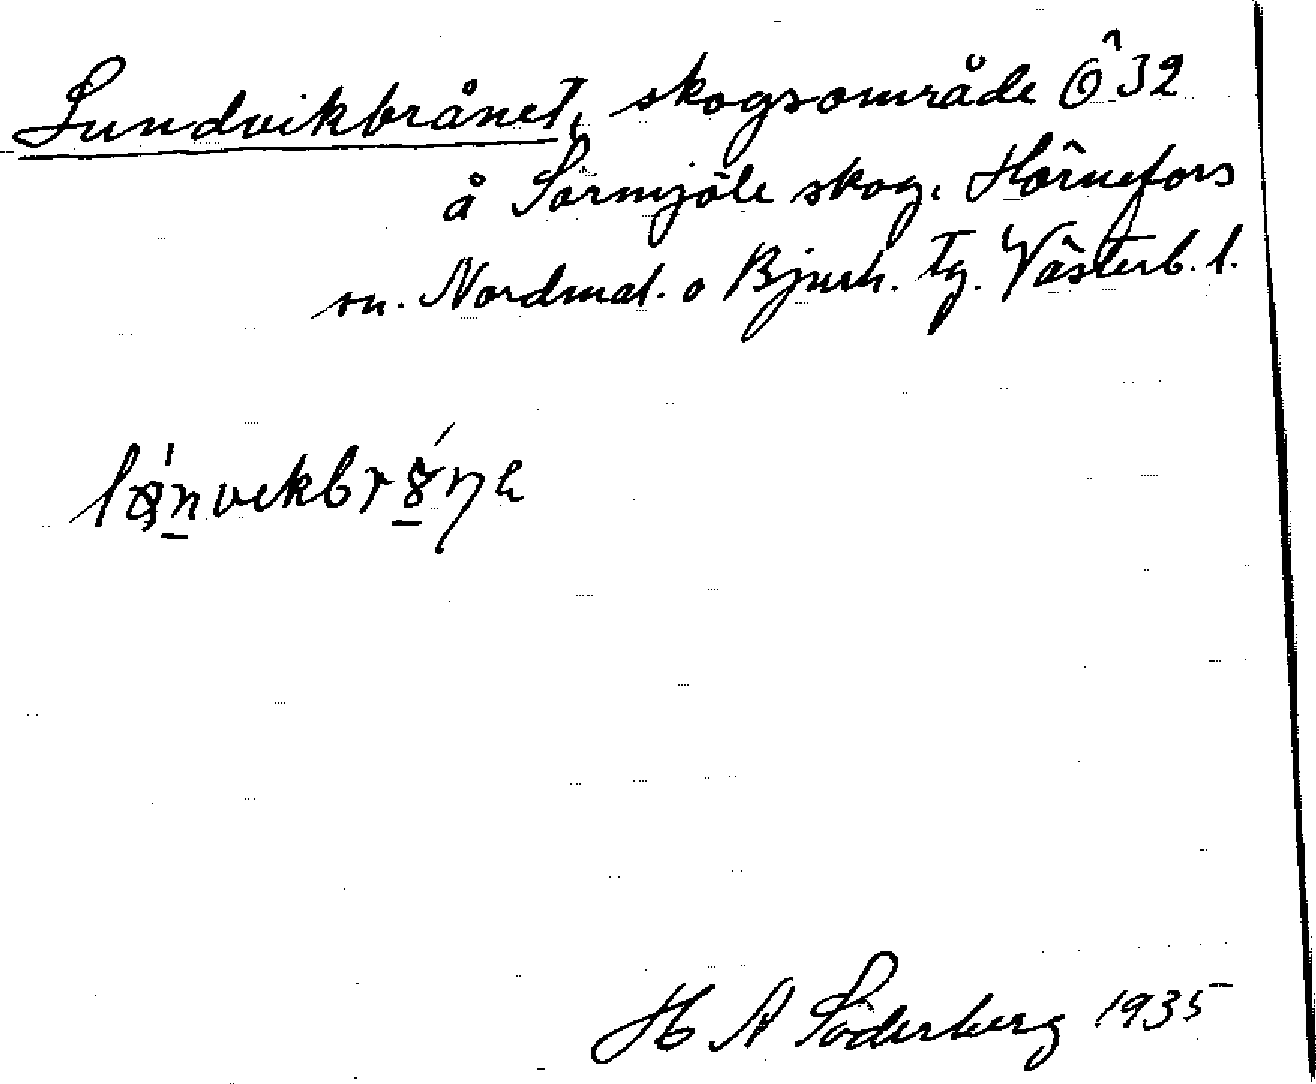 Lundvikbrånet, skogsområde Ö 32
å Sörmjöle skog, Hörnefors
sn. Nordmal. o Bjurh. tg. Västerb. l.
H A Söderberg 1935